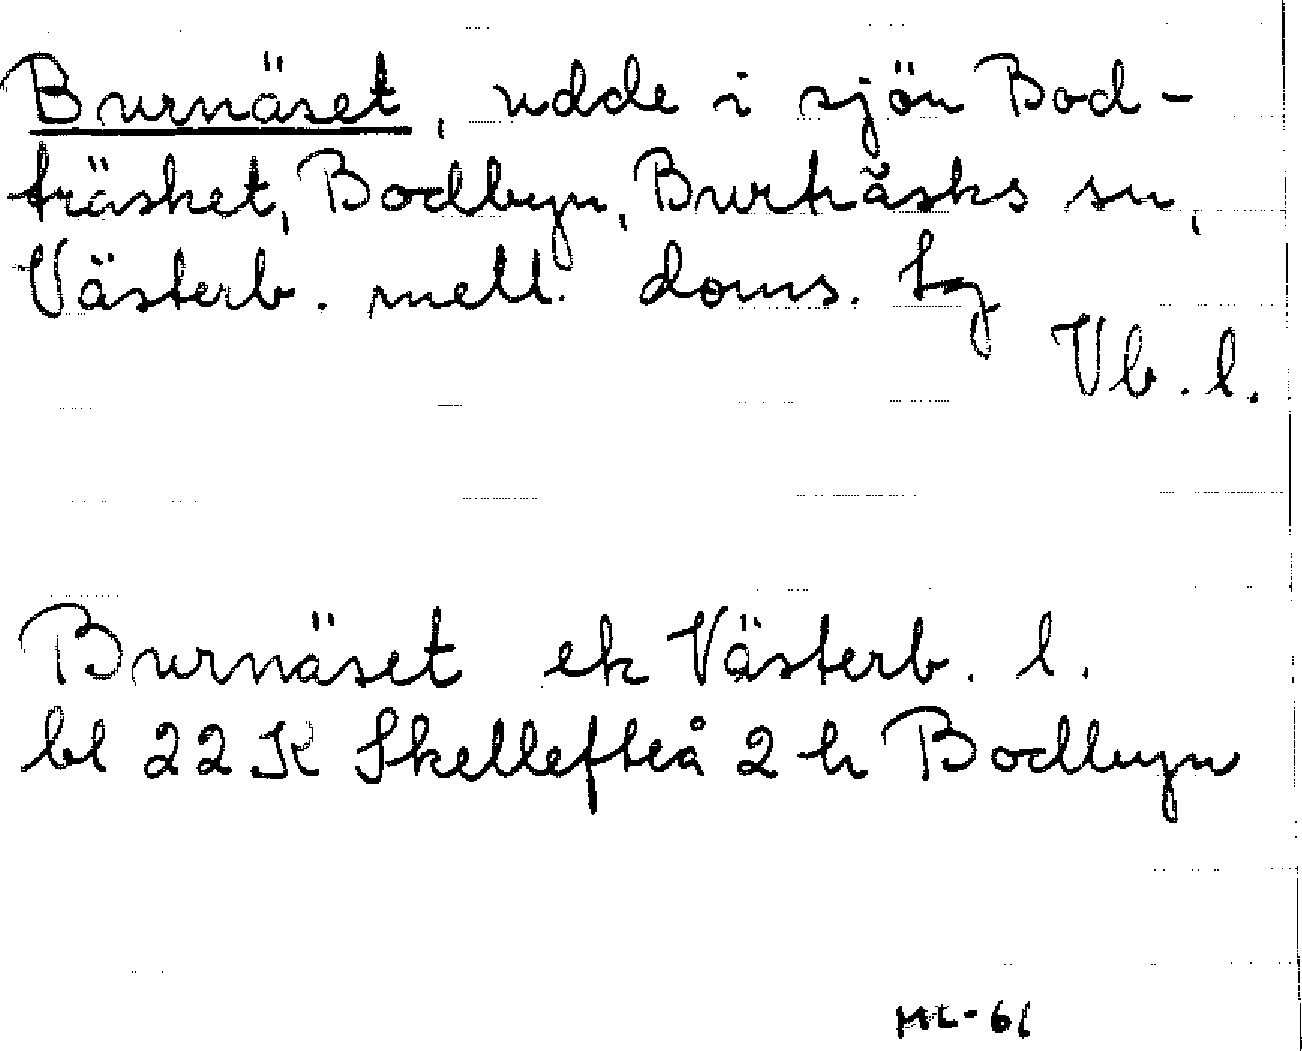 Burnäset, udde i sjön Bod-
träsket, Bodbyn, Burträsks sn,
Västerb. mell. doms. tg
Vb. l.
Burnäset ek Västerb. l.
bl 22 K Skellefteå 2 h Bodbyn
ML-61